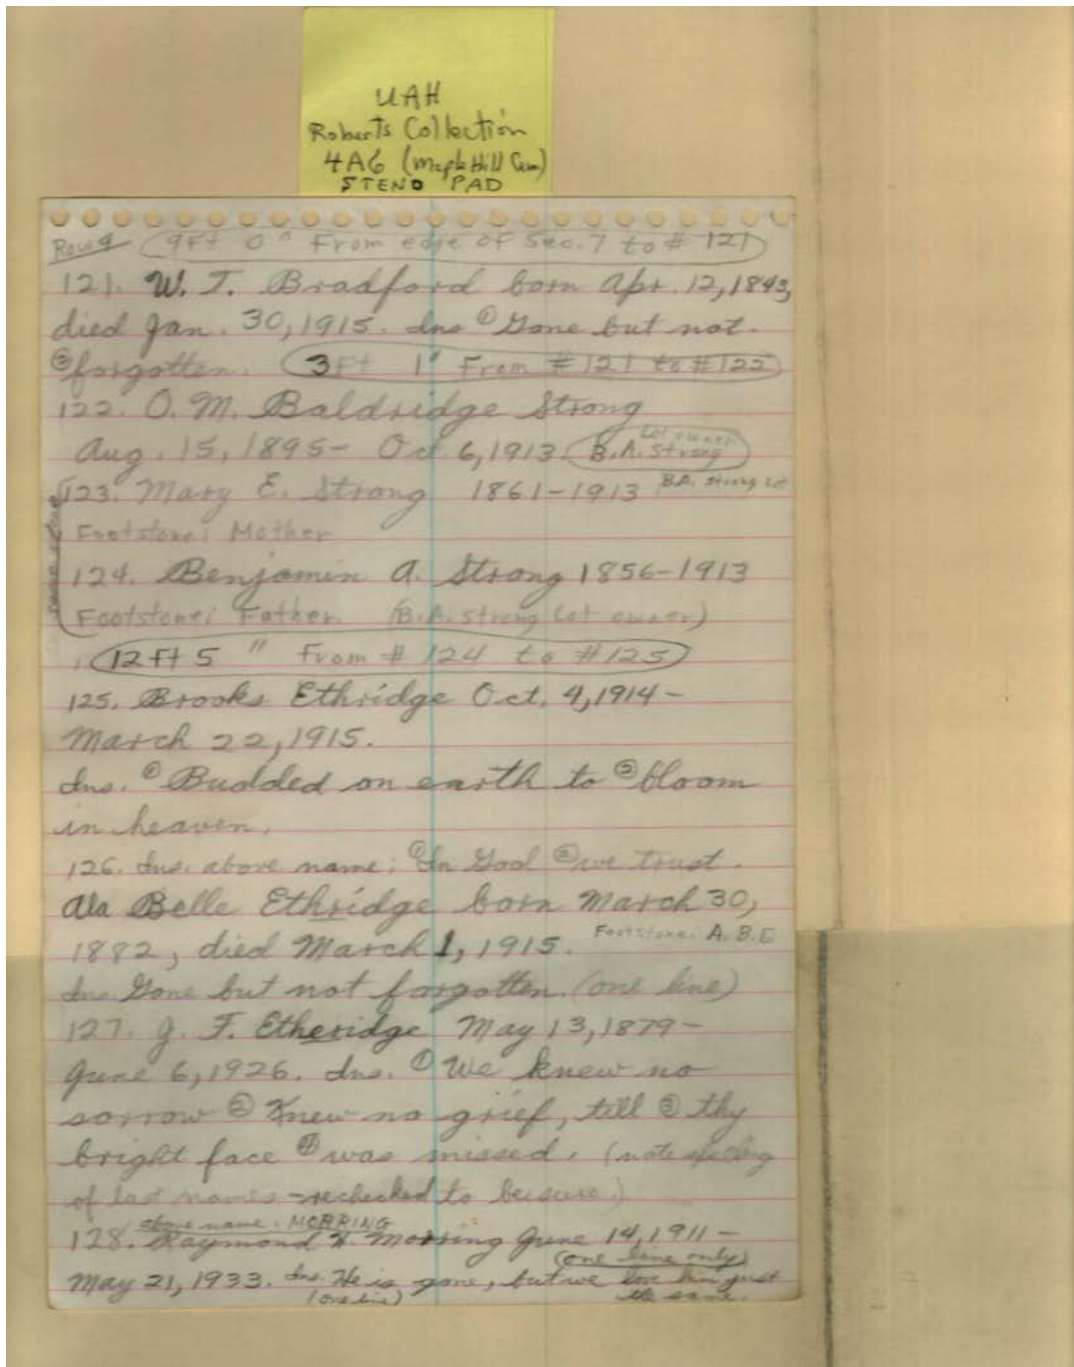 UAH
Roberts Collection
4A6 (Maple Hill Cem)
STENO PAD
Row 9 (9Ft 0" From edge of Sec. 7 to # 121)
121. W. T. Bradford born Apr. 12, 1843,
died Jan. 30, 1915. Ins ① Gone but not
② forgotten. (3Ft 1" From # 121 to # 122)
122. O. M. Baldridge Strong
Lot owner
Aug. 15, 1895- Oct. 6, 1913. (B.A. Strong)
123. Mary E. Strong 1861-1913 B.A. Strong Lot
Footstone: Mother
124. Benjamin A. Strong 1856-1913
Footstone: Father (B.A. Strong Lot owner)
(12Ft 5" From # 124 to # 125)
125. Brooks Ethridge Oct. 4, 1914-
March 22, 1915.
Ins. ① Budded on earth to ② bloom
in heaven.
126. Ins. above name: ① In God ② we trust.
Ala Belle Ethridge born March 30,
1882, died March 1, 1915. Footstone: A.B.E
Ins Gone but not forgotten. (one line)
127. J. F. Etheridge May 13, 1879-
June 6, 1926. Ins. ① We knew no
sorrow ② Knew no grief, till ③ thy
bright face ④ was missed. (note spelling
of last names - rechecked to be sure.)
above name: MORRING
128. Raymond H. Morring June 14, 1911-
(one line only)
May 21, 1933. Ins. He is gone, but we love him just
(one line) the same.